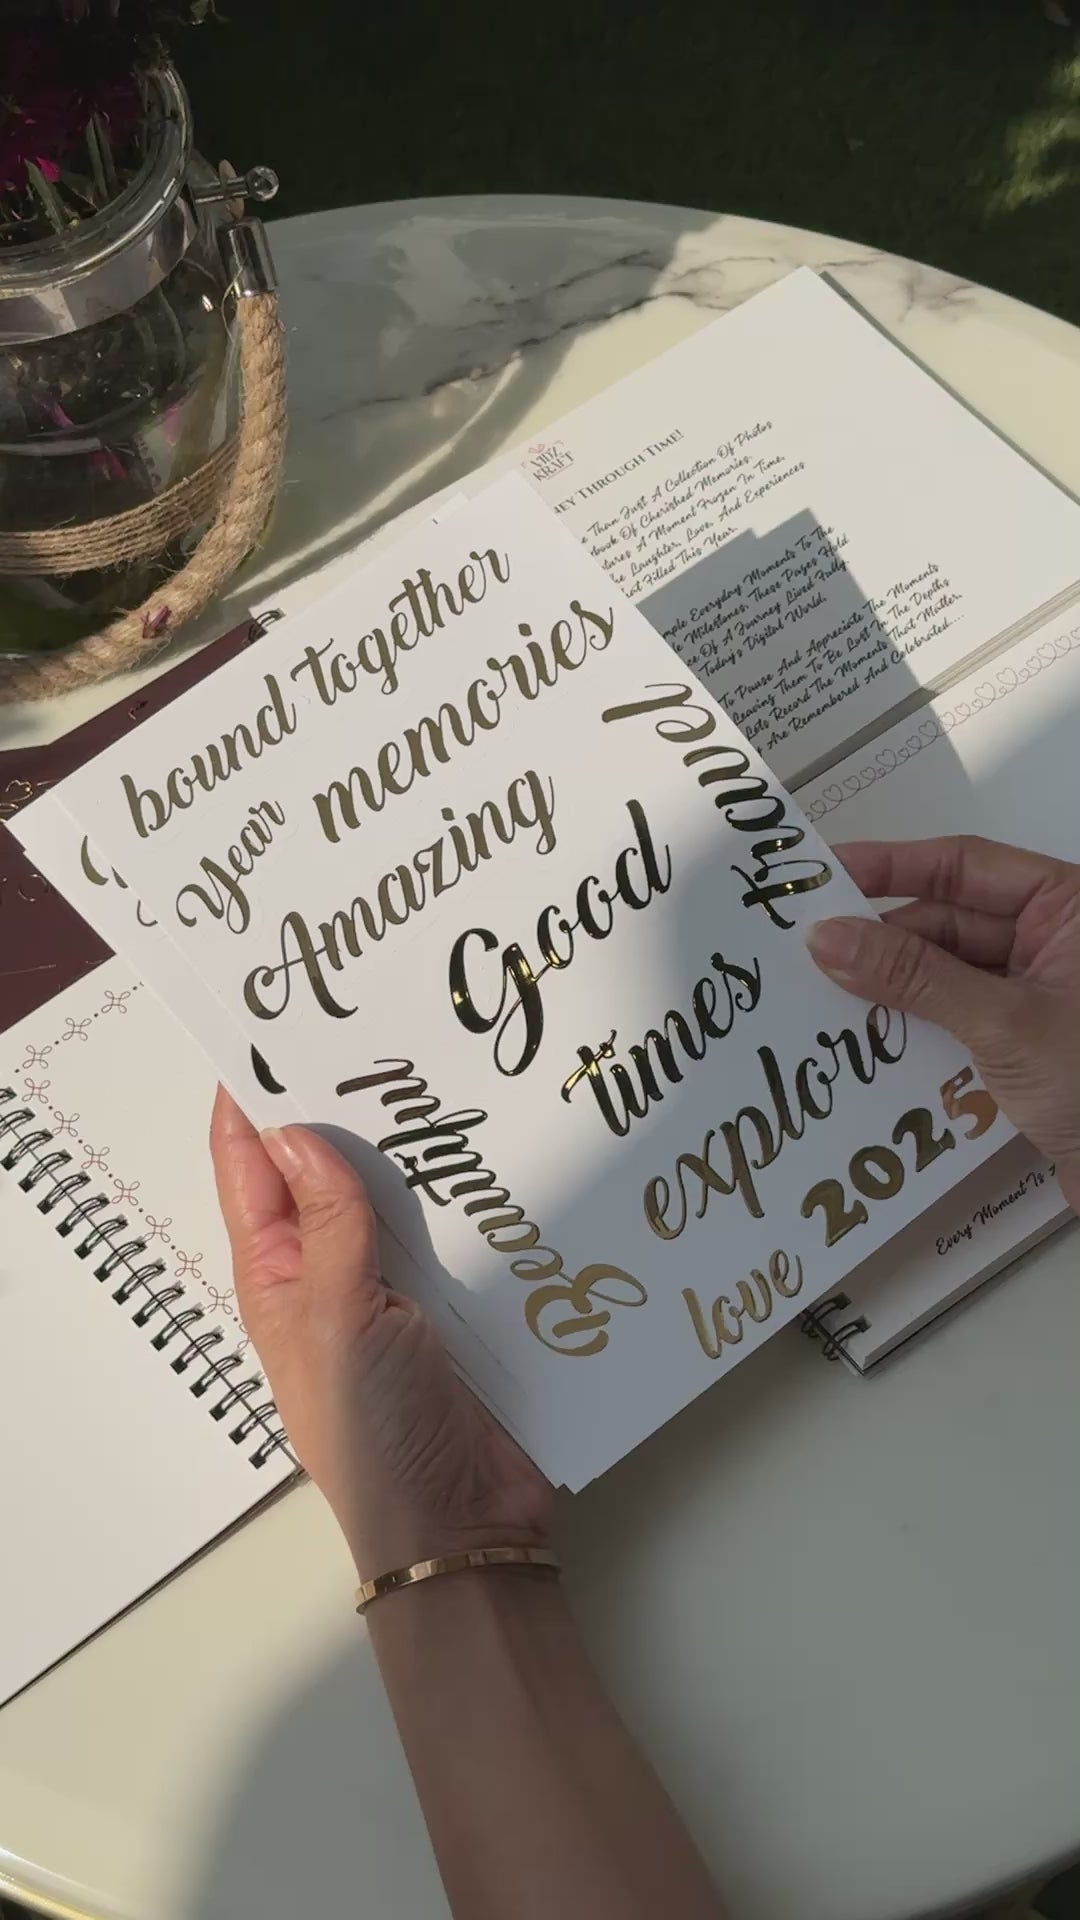 bound together
year memories
Amazing
travel
Good
times
Beautiful
explore
2025
love
VIDZ
KRAFT
THROUGH TIME!
Than Just A Collection Of Photos
Of Cherished Memories.
A Moment Frozen In Time,
Laughter, Love, And Experiences
Filled This Year.
Everyday Moments To The
Milestones, These Pages Hold
Of A Journey Lived Fully.
Today's Digital World,
To Pause And Appreciate The Moments
Leaving Them To Be Lost In The Depths
Lets Record The Moments That Matter,
Are Remembered And Celebrated....
Every Moment Is